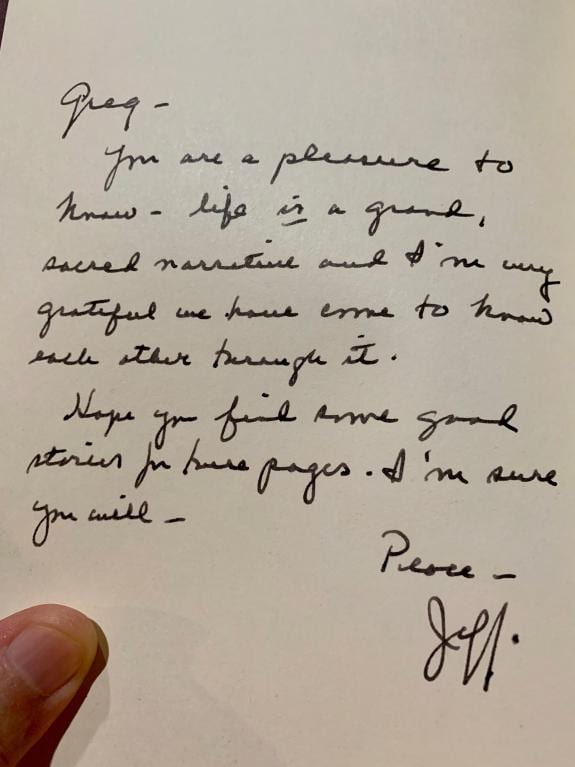 Greg -
You are a pleasure to
know - life is a grand,
sacred narrative and I'm very
grateful we have come to know
each other through it.
Hope you find some good
stories in these pages. I'm sure
you will -
Peace -
Jeff.